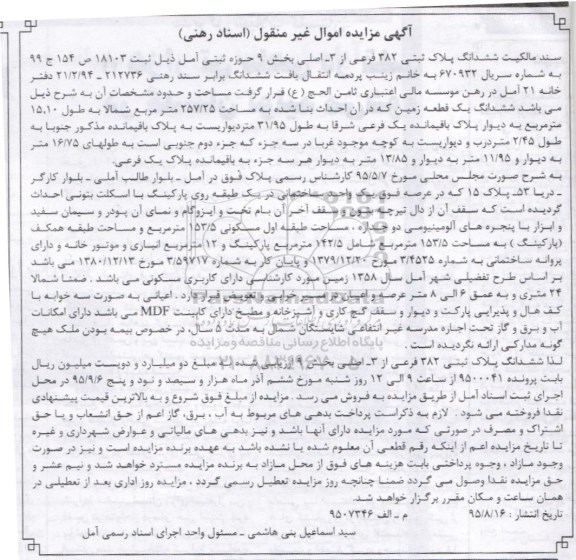 آگهی مزایده اموال غیر منقول (اسناد رهنی)
سند مالکیت ششدانگ پلاک ثبتی ۳۸۲ فرعی از ۳ـ اصلی بخش ۹ حوزه ثبتی آمل ذیل ثبت ۱۸۱۰۳ ص ۱۵۴ ج ۹۹
به شماره سریال ۶۷۰۹۳۲ به خانم زینب پردمه انتقال یافت ششدانگ برابر سند رهنی ۲۱۲۷۳۶ ـ ۲۱/۲/۹۴ دفتر
خانه ۲۱ آمل در رهن موسسه مالی اعتباری ثامن الحج (ع) قرار گرفت مساحت و حدود مشخصات آن به شرح ذیل
می باشد ششدانگ یک قطعه زمین که در آن احداث بنا شده به مساحت ۲۵۷/۲۵ متر مربع شمالا به طول ۱۵،۱۰
مترمربع به دیوار پلاک باقیمانده یک فرعی شرقا به طول ۳۱/۹۵ متردیواریست به پلاک باقیمانده مذکور جنوبا به
طول ۲/۴۵ متردرب و دیواریست به کوچه موجود غربا در سه جزء که جزء دوم جنوبی است به طولهای ۱۶/۷۵ متر
به دیوار و ۱۱/۹۵ متر به دیوار و ۱۳/۸۵ متر به دیوار هر سه جزء به باقیمانده پلاک یک فرعی.
به شرح صورت مجلس محلی مورخ ۹۵/۵/۷ کارشناس رسمی پلاک فوق در آمل ـ بلوار طالب آملی ـ بلوار کارگر
ـ دریا ۵۳ـ پلاک ۱۵ که در عرصه فوق یک واحد ساختمانی در یک طبقه روی پارکینگ با اسکلت بتونی احداث
گردیده است که سقف آن از دال تیرچه سقف آخر آن بام تخت و ایزوگام و نمای آن پودر و سیمان سفید
و ابزار با پنجره های آلومینیومی دو جداره ـ مساحت طبقه اول مسکونی ۱۵۳/۵ مترمربع و مساحت طبقه همکف
(پارکینگ) به مساحت ۱۵۳/۵ مترمربع شامل ۱۴۲/۵ مترمربع پارکینگ و ۱۲ مترمربع انباری و موتور خانه و دارای
پروانه ساختمانی به شماره ۳/۴۵۲۵ مورخ ۱۳۷۹/۱۲/۲۰ و پایان کار به شماره ۳/۵۹۷۱۷ مورخ ۱۳۸۰/۱۲/۱۳ می باشد
بر اساس طرح تفضیلی شهر آمل سال ۱۳۵۸ زمین مورد کارشناسی دارای کاربری مسکونی می باشد. ضمنا شمالا
۲۴ متری و به عمق ۶ الی ۸ متر عرصه و اعیان در مسیر خرابی و تعریض قرار دارد. اعیانی به صورت سه خوابه با
کف هال و پذیرایی پارکت و دیوار و سقف گچ کاری و آشپزخانه و مطبخ دارای کابینت MDF می باشد دارای امکانات
آب و برق و گاز تحت اجاره مدرسه غیر انتفاعی شایستگان شمال به مدت ۵ سال، در خصوص بیمه بودن ملک هیچ
گونه مدارکی ارائه نگردیده است.
لذا ششدانگ پلاک ثبتی ۳۸۲ فرعی از ۳ـ اصلی بخش ۹ ارزیابی شده به مبلغ دو میلیارد و دویست میلیون ریال
بابت پرونده ۹۵۰۰۰۴۱ از ساعت ۹ الی ۱۲ روز شنبه مورخ ششم آذر ماه هزار و سیصد و نود و پنج ۹۵/۹/۶ در محل
اجرای ثبت اسناد آمل از طریق مزایده به فروش می رسد. مزایده از مبلغ فوق شروع و به بالاترین قیمت پیشنهادی
نقدا فروخته می شود. لازم به ذکراست پرداخت بدهی های مربوط به آب، برق، گاز اعم از حق انشعاب و یا حق
اشتراک و مصرف در صورتی که مورد مزایده دارای آنها باشد و نیز بدهی های مالیاتی و عوارض شهرداری و غیره
تا تاریخ مزایده اعم از اینکه رقم قطعی آن معلوم شده یا نشده باشد به عهده برنده مزایده است و نیز در صورت
وجود مازاد، وجوه پرداختی بابت هزینه های فوق از محل مازاد به برنده مزایده مسترد خواهد شد و نیم عشر و
حق مزایده نقدا وصول می گردد ضمنا چنانچه روز مزایده تعطیل رسمی گردد، مزایده روز اداری بعد از تعطیلی در
همان ساعت و مکان مقرر برگزار خواهد شد.
تاریخ انتشار: ۹۵/۸/۱۶ م ـ الف ۹۵۰۷۳۴۶
سید اسماعیل بنی هاشمی ـ مسئول واحد اجرای اسناد رسمی آمل
پایگاه اطلاع رسانی مناقصه و مزایده